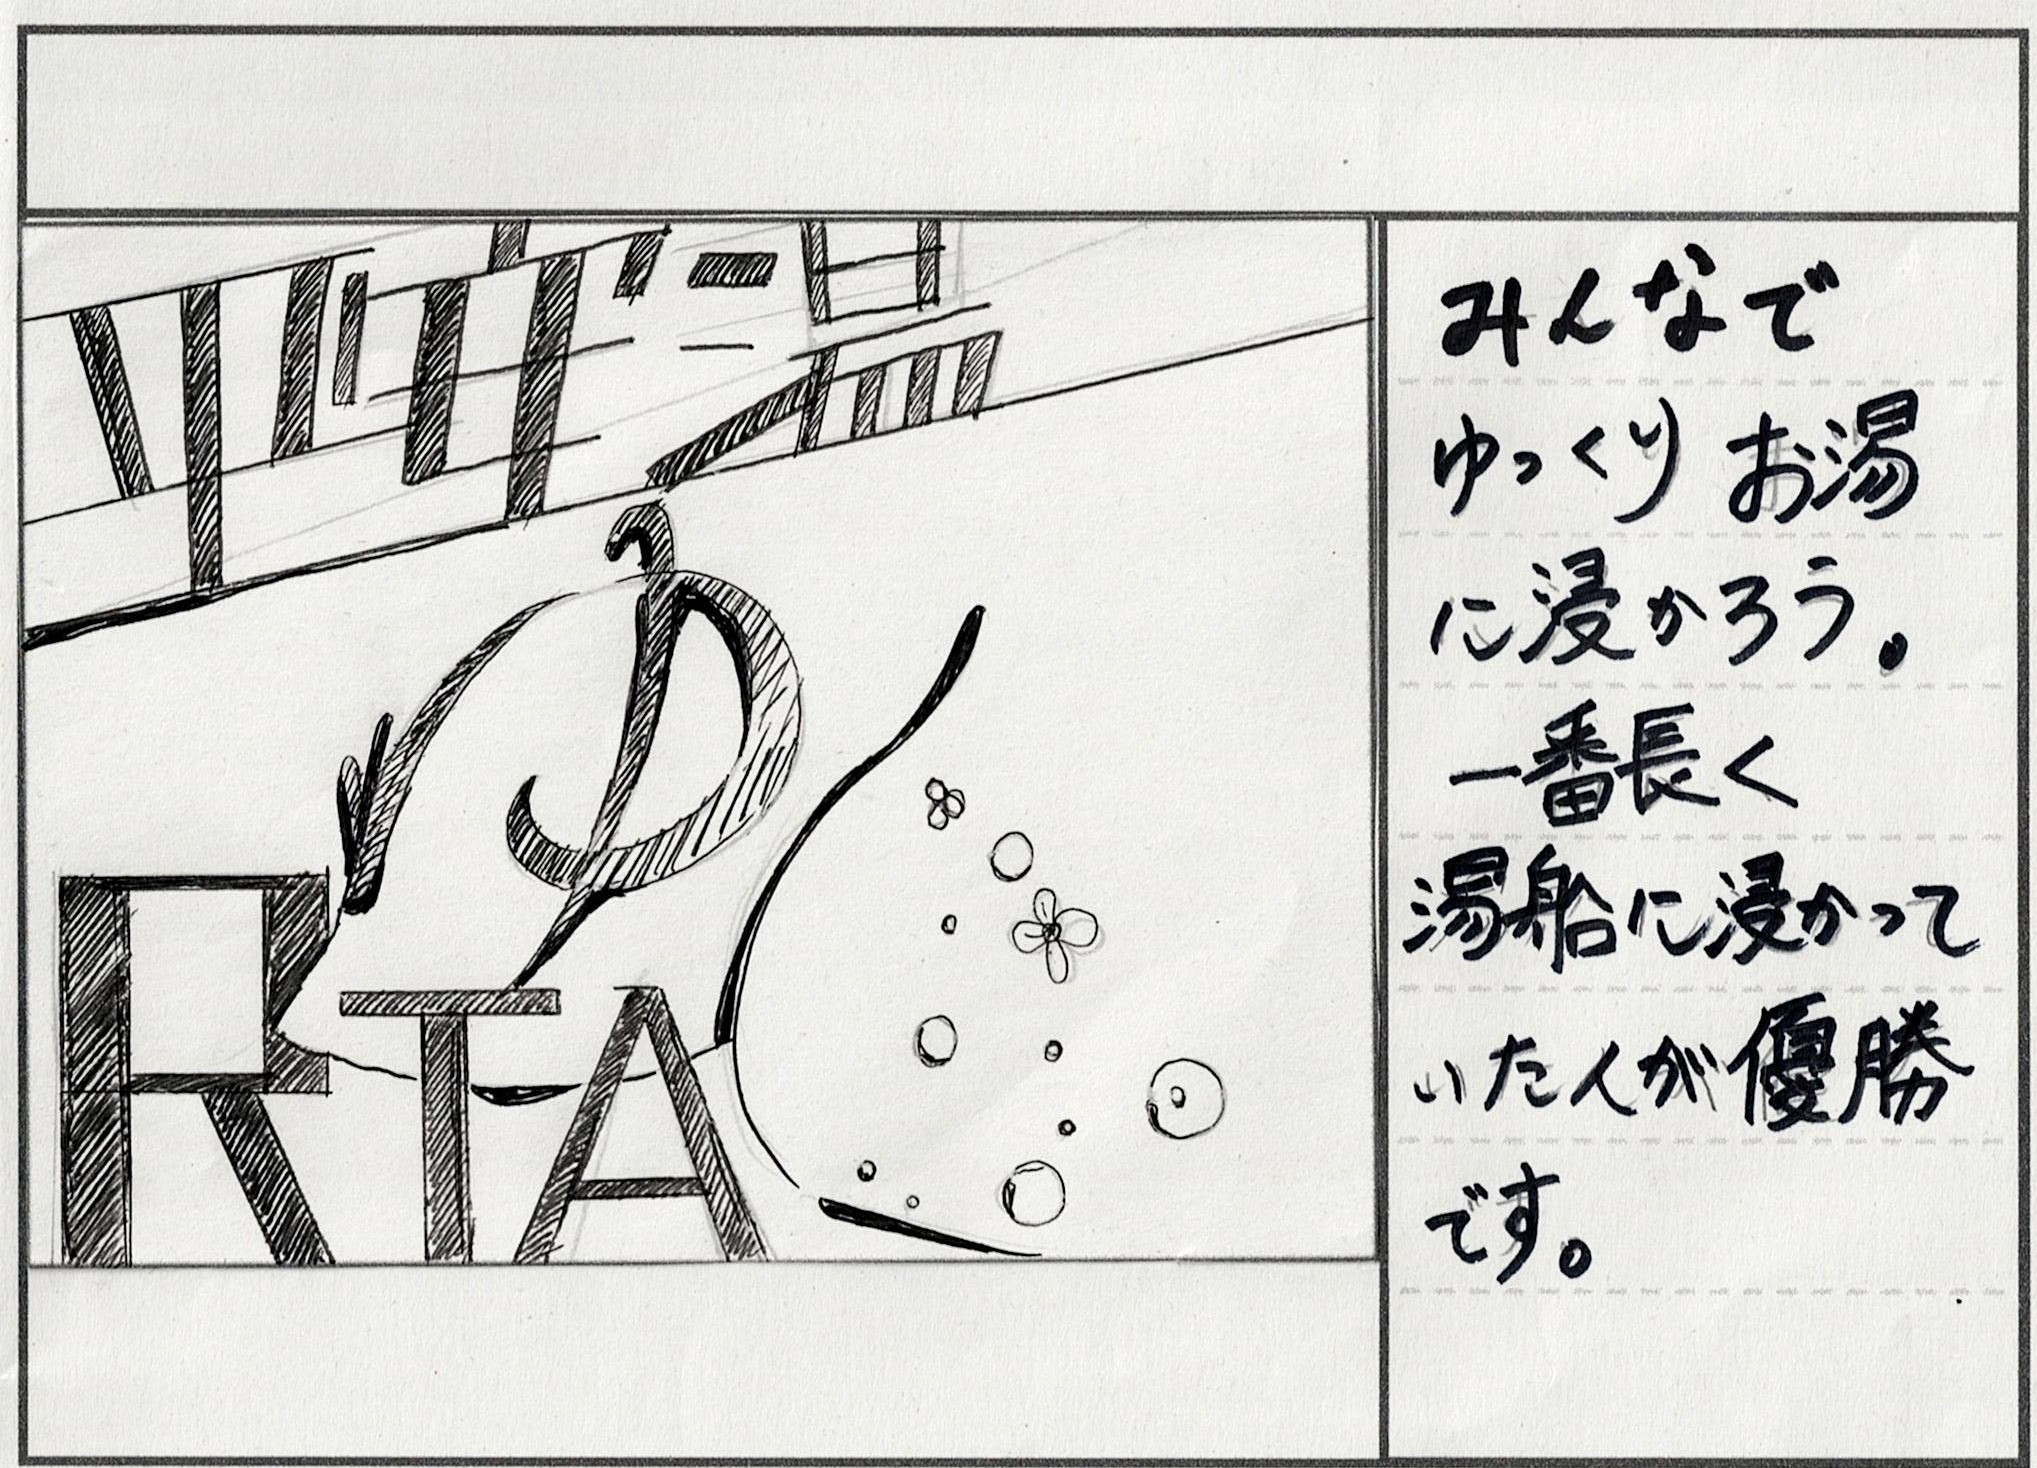 ゆ
RTA
みんなで
ゆっくりお湯
に浸かろう。
一番長く
湯船に浸かって
いた人が優勝
です。